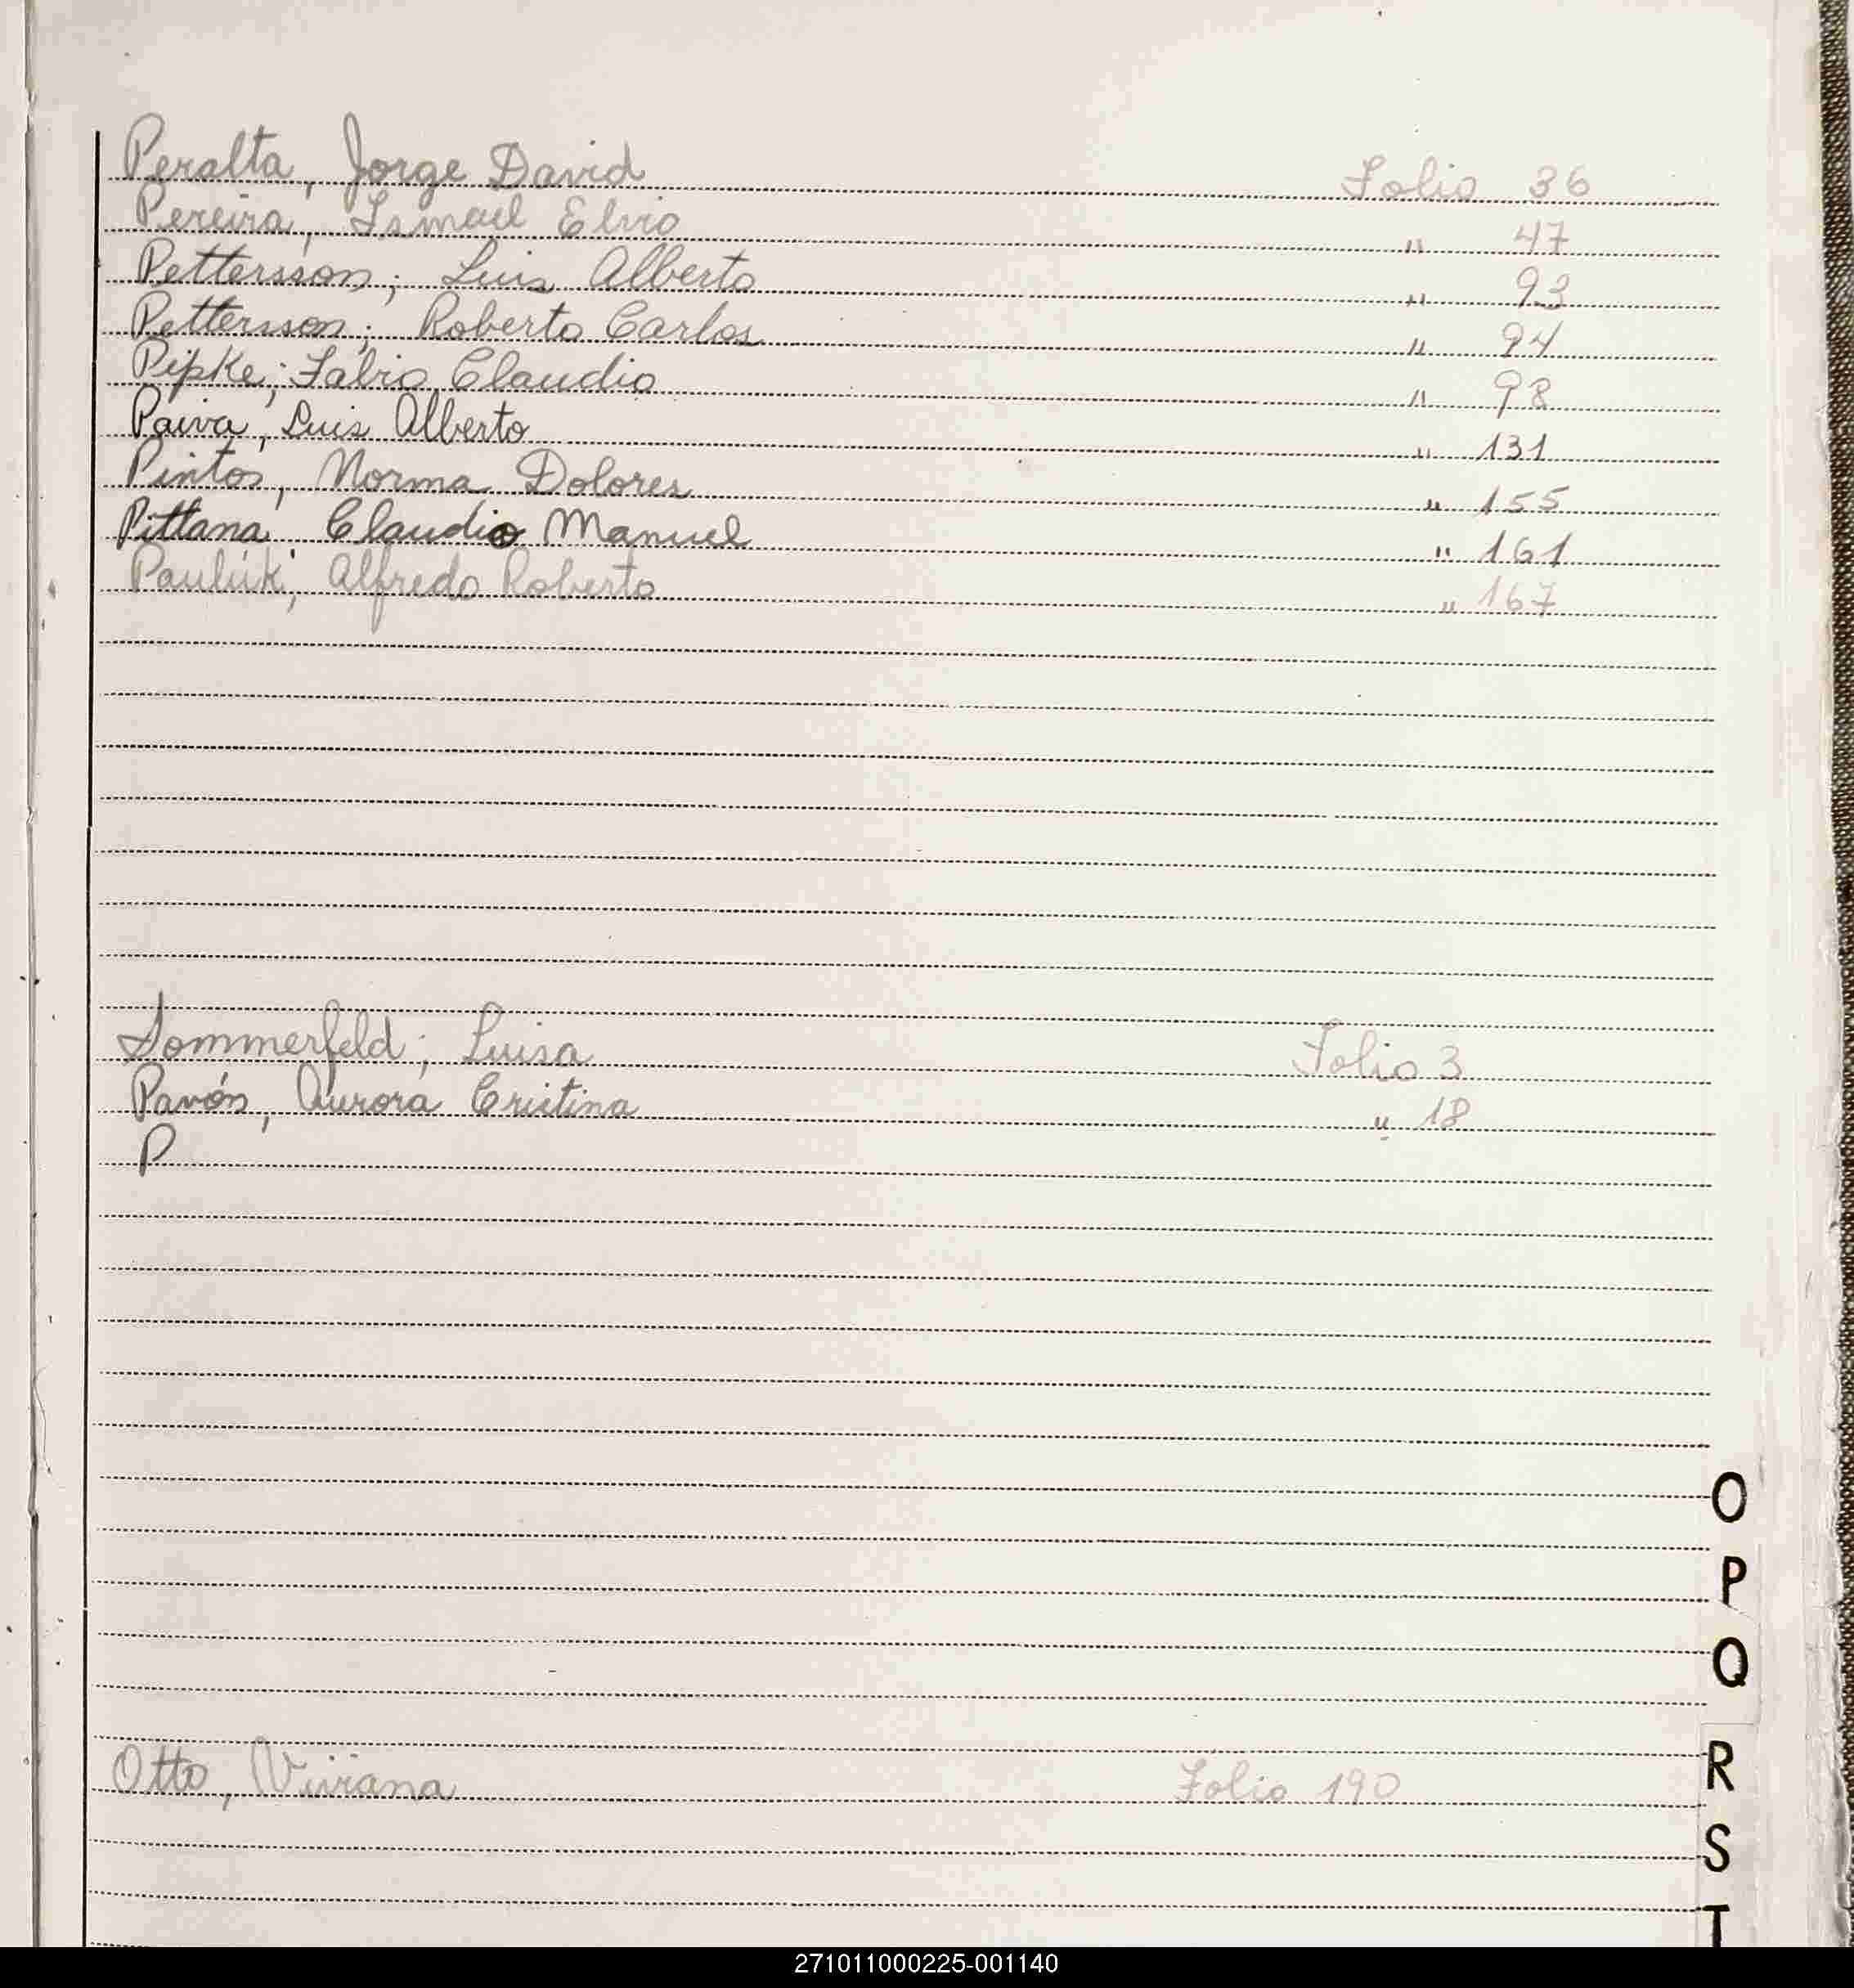 Peralta, Jorge David Folio 36
Pereira, Ismael Elvio " 47
Pettersson; Luis Alberto " 93
Pettersson; Roberto Carlos " 94
Pipke; Fabio Claudio " 98
Paiva, Luis Alberto " 131
Pintos, Norma Dolores " 155
Pittana; Claudio Manuel " 161
Pauluk; Alfredo Roberto " 167
Sommerfeld; Luisa Folio 3
Pavón, Aurora Cristina " 18
P
O
P
Q
R
Otto, Viviana Folio 190
S
T
271011000225-001140